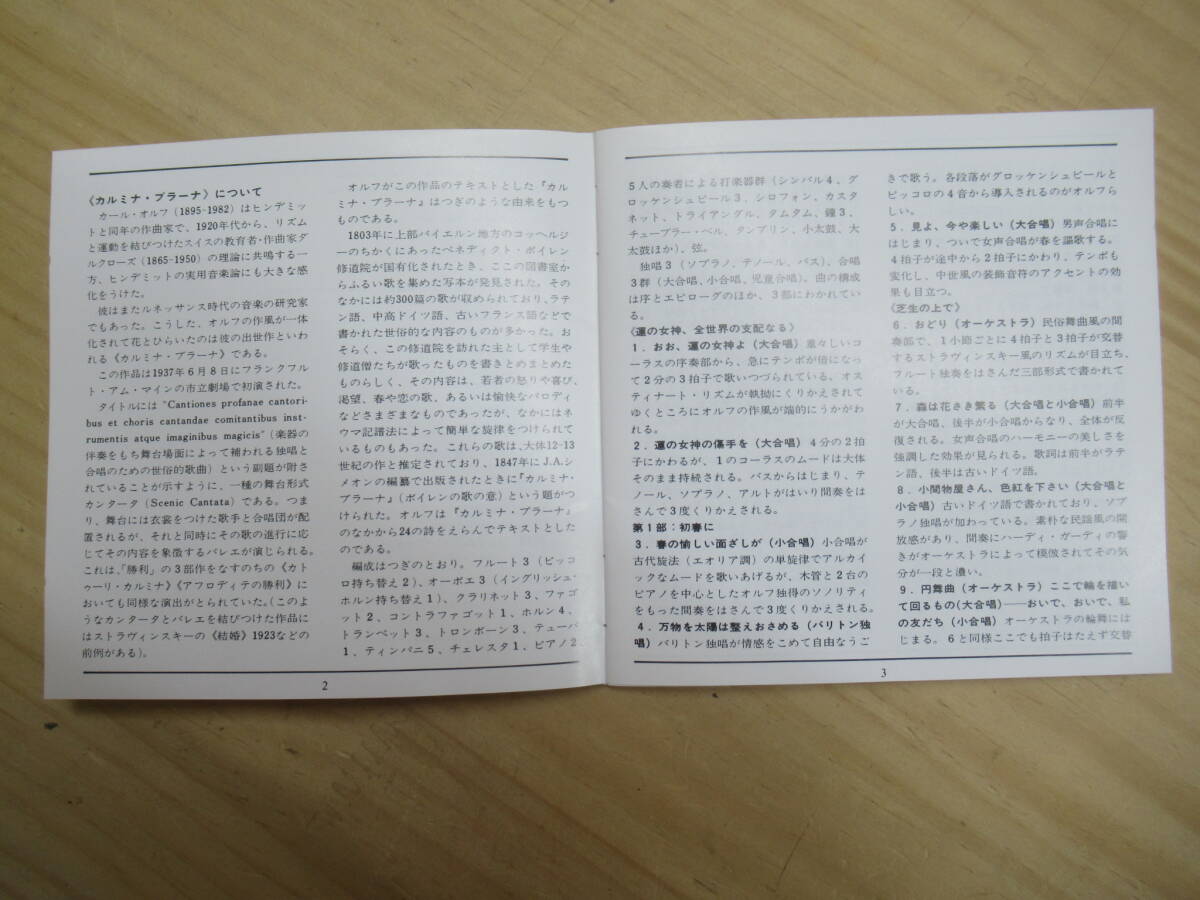 《カルミナ・ブラーナ》について
カール・オルフ(1895-1982)はヒンデミッ
トと同年の作曲家で、1920年代から、リズム
と運動を結びつけたスイスの教育者・作曲家ダ
ルクローズ(1865-1950)の理論に共鳴する一
方、ヒンデミットの実用音楽論にも大きな感
化をうけた。
彼はまたルネッサンス時代の音楽の研究家
でもあった。こうした、オルフの作風が一体
化されて花とひらいたのは彼の出世作といわ
れる《カルミナ・ブラーナ》である。
この作品は1937年6月8日にフランクフル
ト・アム・マインの市立劇場で初演された。
タイトルには"Cantiones profanae cantori-
bus et choris cantandae comitantibus inst-
rumentis atque imaginibus magicis"(楽器の
伴奏をもち舞台場面によって補われる独唱と
合唱のための世俗的歌曲)という副題が附さ
れていることが示すように、一種の舞台形式
カンタータ(Scenic Cantata)である。つま
り、舞台には衣裳をつけた歌手と合唱団が配
置されるが、それと同時にその歌の進行に応
じてその内容を象徴するバレエが演じられる。
これは、「勝利」の3部作をなすのちの《カト
ゥーリ・カルミナ》《アフロディテの勝利》に
おいても同様な演出がとられていた。(このよ
うなカンタータとバレエを結びつけた作品に
はストラヴィンスキーの《結婚》1923などの
前例がある)。
オルフがこの作品のテキストとした『カル
ミナ・ブラーナ』はつぎのような由来をもつ
ものである。
1803年に上部バイエルン地方のコッヘルジ
ーのちかくにあったベネディクト・ボイレン
修道院が国有化されたとき、ここの図書室か
らふるい歌を集めた写本が発見された。その
なかには約300篇の歌が収められており、ラテ
ン語、中高ドイツ語、古いフランス語などで
書かれた世俗的な内容のものが多かった。お
そらく、この修道院を訪れた主として学生や
修道僧たちが歌ったものを書きとめまとめた
ものらしく、その内容は、若者の怒りや喜び、
渇望、春や恋の歌、あるいは愉快なパロディ
などさまざまなものであったが、なかにはネ
ウマ記譜法によって簡単な旋律をつけられて
いるものもあった。これらの歌は、大体12-13
世紀の作と推定されており、1847年にJ.A.シ
メオンの編纂で出版されたときに『カルミナ・
ブラーナ』(ボイレンの歌の意)という題がつ
けられた。オルフは『カルミナ・ブラーナ』
のなかから24の詩をえらんでテキストとした
のである。
編成はつぎのとおり。フルート3(ピッコ
ロ持ち替え2)、オーボエ3(イングリッシュ・
ホルン持ち替え1)、クラリネット3、ファゴ
ット2、コントラファゴット1、ホルン4、
トランペット3、トロンボーン3、テューバ
1、ティンパニ5、チェレスタ1、ピアノ2
2
5人の奏者による打楽器群(シンバル4、グ
ロッケンシュピール3、シロフォン、カスタ
ネット、トライアングル、タムタム、鐘3、
チューブラー・ベル、タンブリン、小太鼓、大
太鼓ほか)、弦。
独唱3(ソプラノ、テノール、バス)、合唱
3群(大合唱、小合唱、児童合唱)。曲の構成
は序とエピローグのほか、3部にわかれてい
る。
《運の女神、全世界の支配なる》
1.おお、運の女神よ(大合唱)重々しいコ
ーラスの序奏部から、急にテンポが倍になっ
て2分の3拍子で歌いつづられている。オス
ティナート・リズムが執拗にくりかえされて
ゆくところにオルフの作風が端的にうかがわ
れる。
2.運の女神の傷手を(大合唱)4分の2拍
子にかわるが、1のコーラスのムードは大体
そのまま持続される。バスからはじまり、テ
ノール、ソプラノ、アルトがはいり間奏をは
さんで3度くりかえされる。
第1部:初春に
3.春の愉しい面ざしが(小合唱)小合唱が
古代旋法(エオリア調)の単旋律でアルカイ
ックなムードを歌いあげるが、木管と2台の
ピアノを中心としたオルフ独得のソノリティ
をもった間奏をはさんで3度くりかえされる。
4.万物を太陽は整えおさめる(バリトン独
唱)バリトン独唱が情感をこめて自由なうご
きで歌う。各段落がグロッケンシュピールと
ピッコロの4音から導入されるのがオルフら
しい。
5.見よ、今や楽しい(大合唱)男声合唱に
はじまり、ついで女声合唱が春を謳歌する。
4拍子が途中から2拍子にかわり、テンポも
変化し、中世風の装飾音符のアクセントの効
果も目立つ。
《芝生の上で》
6.おどり(オーケストラ)民俗舞曲風の間
奏部で、1小節ごとに4拍子と3拍子が交替
するストラヴィンスキー風のリズムが目立ち、
フルート独奏をはさんだ三部形式で書かれて
いる。
7.森は花さき繁る(大合唱と小合唱)前半
が大合唱、後半が小合唱からなり、全体が反
復される。女声合唱のハーモニーの美しさを
強調した効果が見られる。歌詞は前半がラテ
ン語、後半は古いドイツ語。
8.小間物屋さん、色紅を下さい(大合唱と
小合唱)古いドイツ語で書かれており、ソプ
ラノ独唱が加わっている。素朴な民謡風の開
放感があり、間奏にハーディ・ガーディの響
きがオーケストラによって模倣されてその気
分が一段と濃い。
9.円舞曲(オーケストラ)ここで輪を描い
て回るもの(大合唱)——おいで、おいで、私
の友だち(小合唱)オーケストラの輪舞には
じまる。6と同様ここでも拍子はたえず交替
3